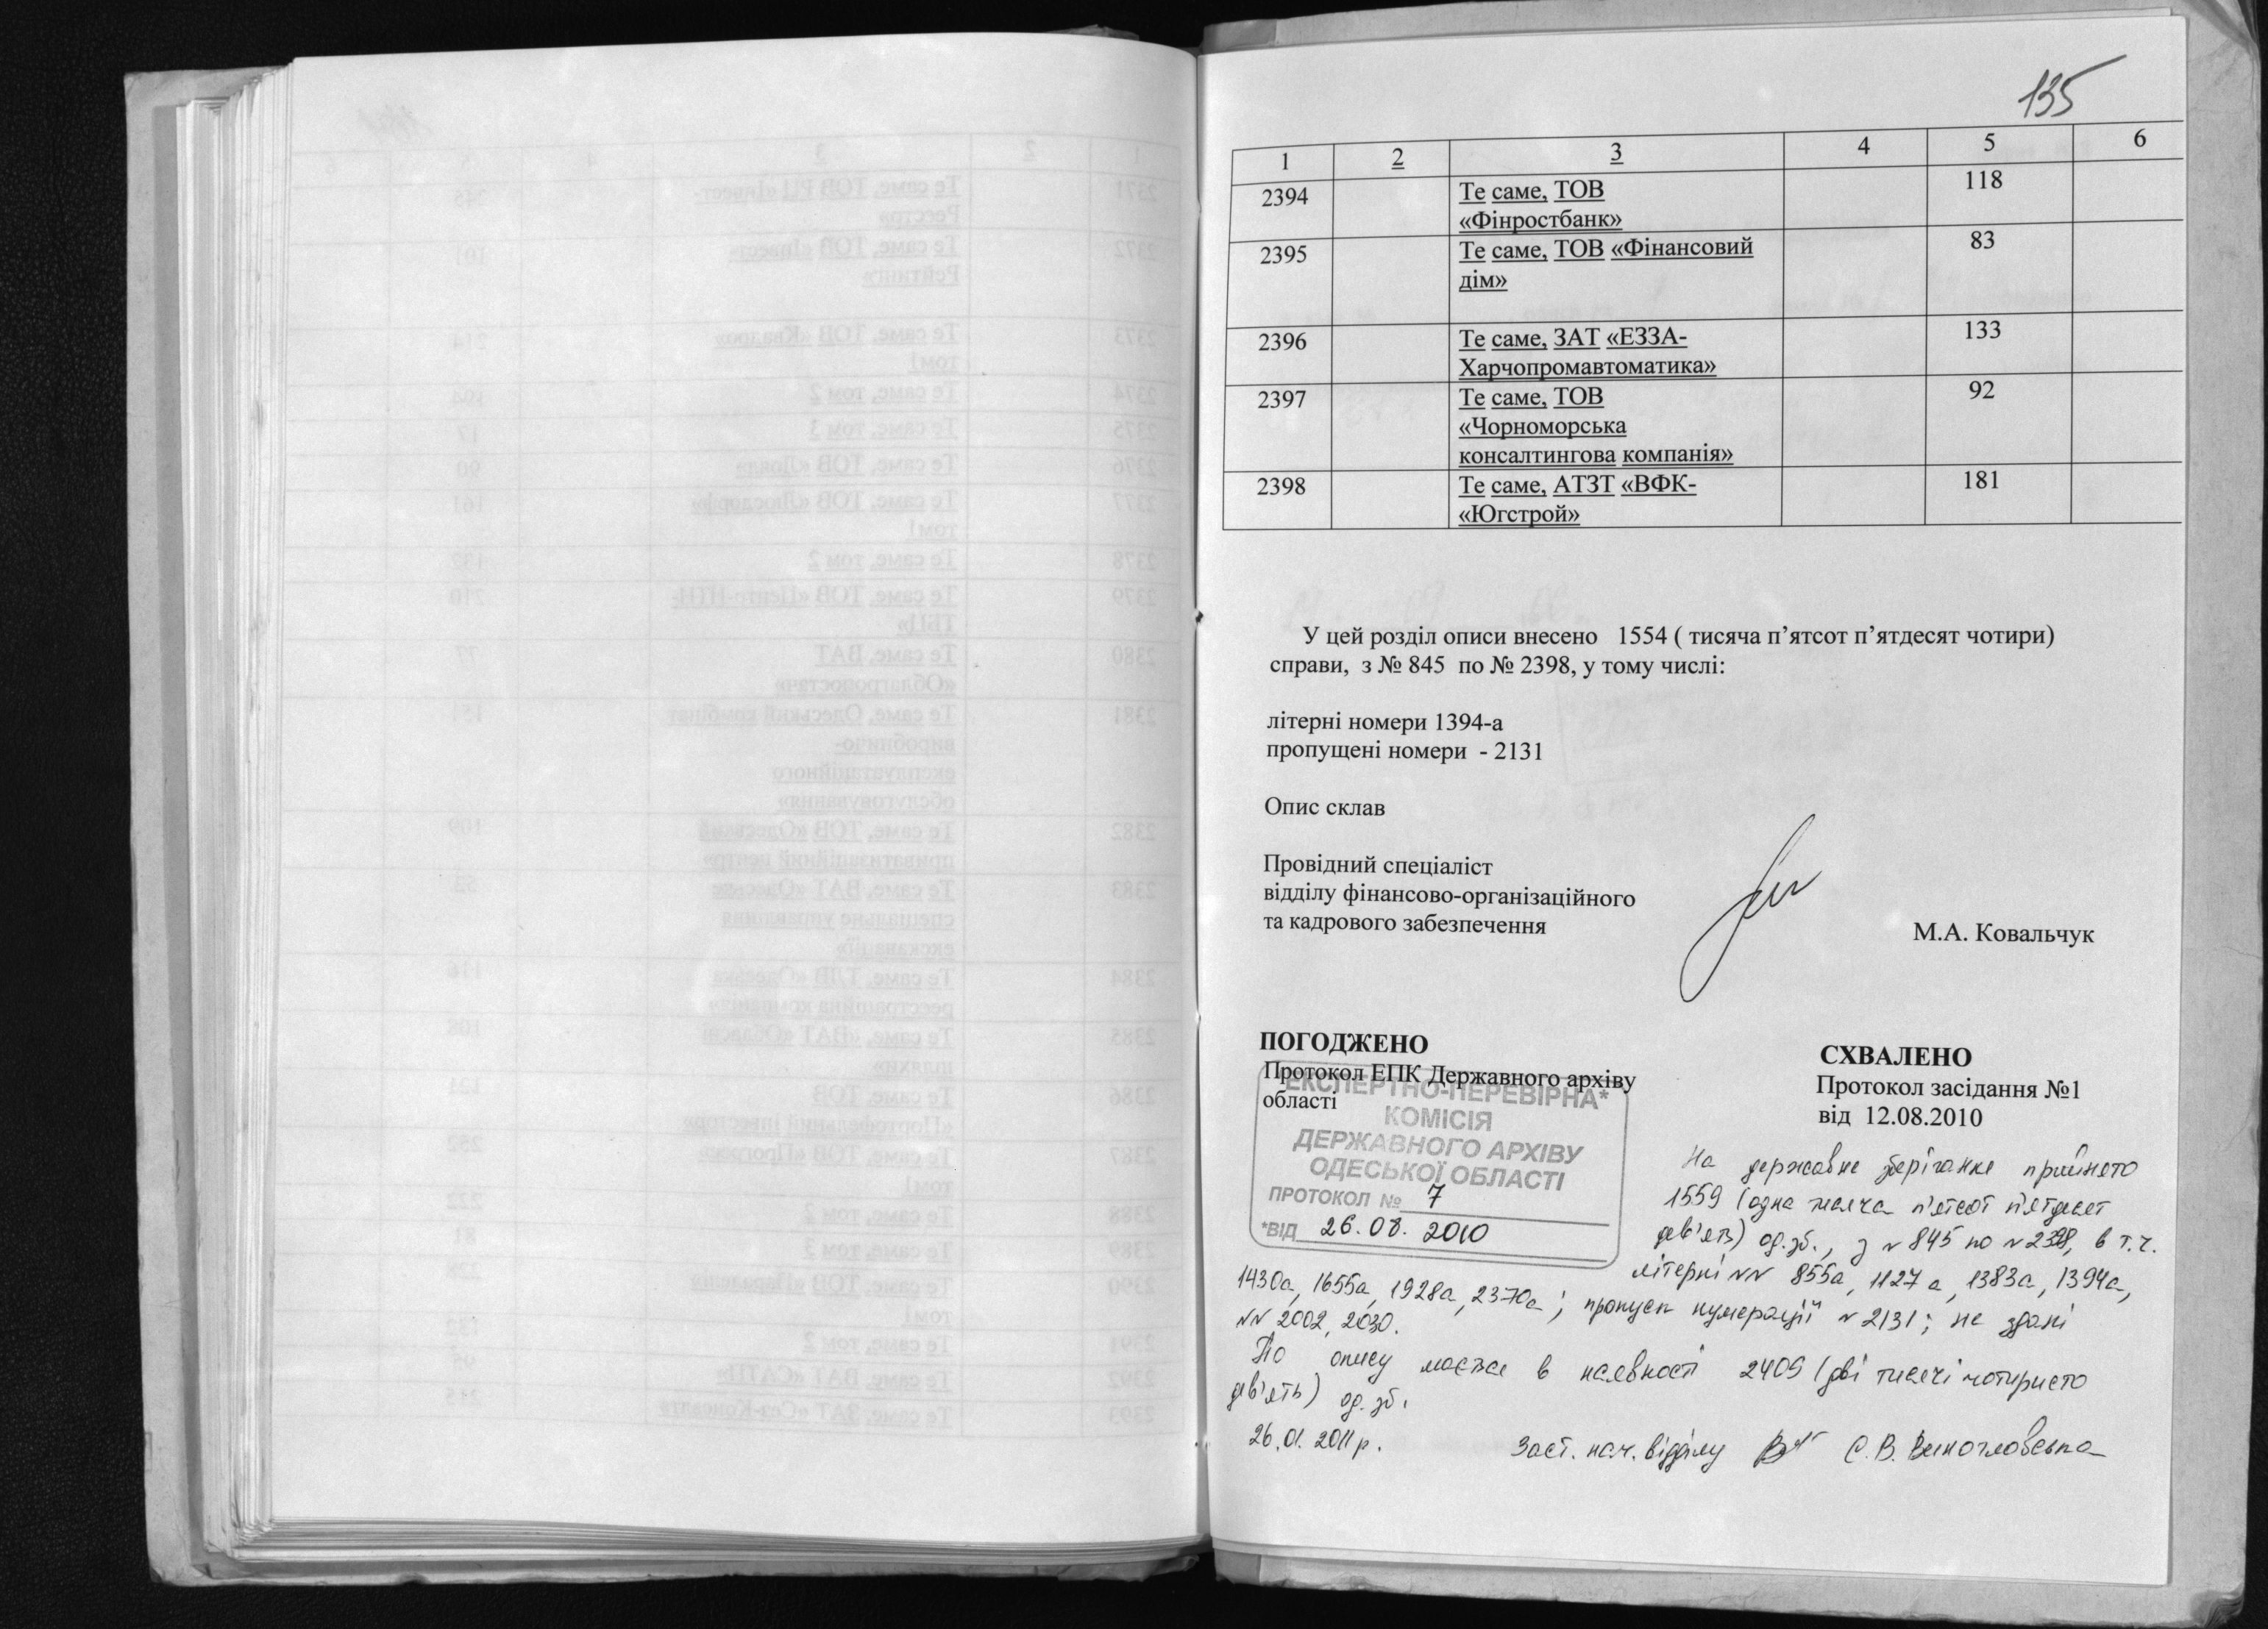 135
1 2 3 4 5 6
2394 Те саме, ТОВ 118
«Фінростбанк»
2395 Те саме, ТОВ «Фінансовий 83
дім»
2396 Те саме, ЗАТ «ЕЗЗА- 133
Харчопромавтоматика»
2397 Те саме, ТОВ 92
«Чорноморська
консалтингова компанія»
2398 Те саме, АТЗТ «ВФК- 181
«Югстрой»
У цей розділ описи внесено 1554 ( тисяча п’ятсот п’ятдесят чотири)
справи, з № 845 по № 2398, у тому числі:
літерні номери 1394-а
пропущені номери - 2131
Опис склав
Провідний спеціаліст
відділу фінансово-організаційного
та кадрового забезпечення
М.А. Ковальчук
ПОГОДЖЕНО
Протокол ЕПК Державного архіву
області
ЕКСПЕРТНО-ПЕРЕВІРНА*
КОМІСІЯ
ДЕРЖАВНОГО АРХІВУ
ОДЕСЬКОЇ ОБЛАСТІ
ПРОТОКОЛ № 7
*ВІД 26.08. 2010
СХВАЛЕНО
Протокол засідання №1
від 12.08.2010
На державне зберігання прийнято
1559 (одна тисяча п'ятсот п'ятдесят
дев'ять) од.зб., з № 845 по № 2398, в т.ч.
літерні №№ 855а, 1127а, 1383а, 1394а,
1430а, 1655а, 1928а, 2370а; пропуск нумерації № 2131; не здані
№№ 2002, 2030.
По опису мається в наявності 2409 (дві тисячі чотиристо
дев'ять) од. зб.
26.01. 2011 р.
Заст. нач. відділу С.В.